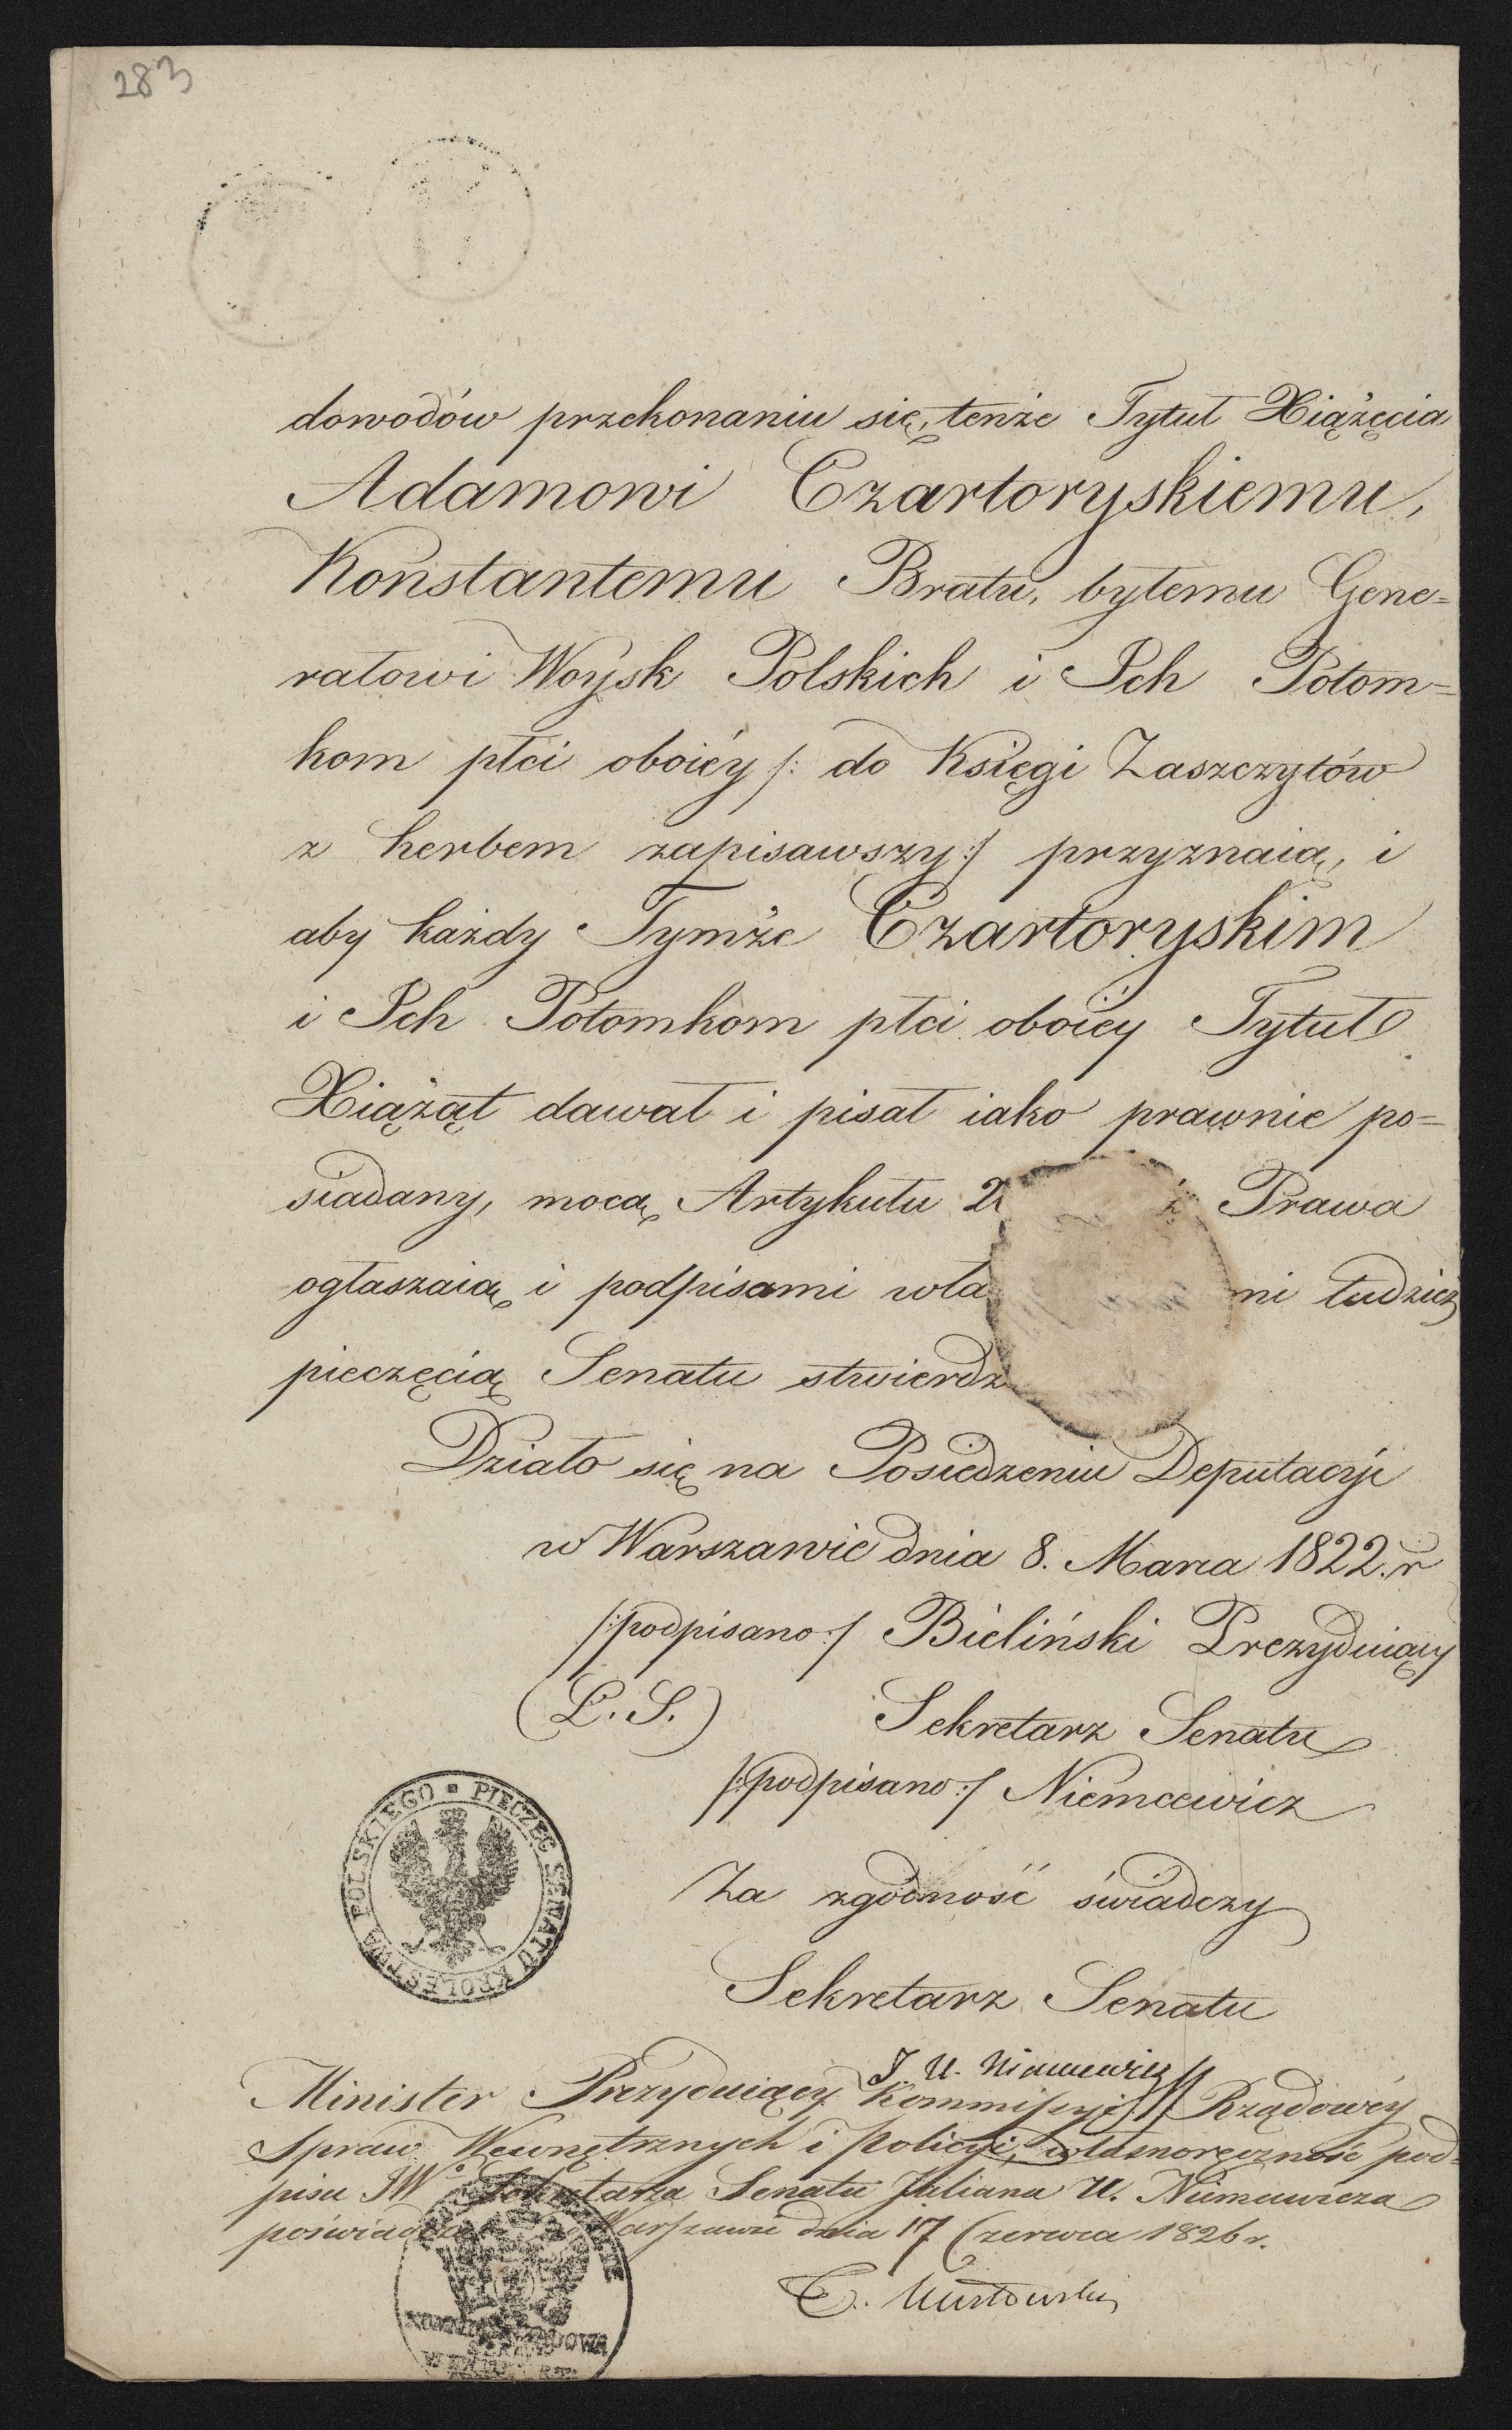 283
dowodów przekonaniu się, tenże Tytuł Xiążęcia
Adamowi Czartoryskiemu,
Konstantemu Bratu, byłemu Gene=
rałowi Woysk Polskich i Ich Potom=
kom płci oboiéy /: do Księgi Zaszczytów
z herbem zapisawszy :/ przyznaią, i
aby każdy Tymże Czartoryskim
i Ich Potomkom płci oboiéy Tytuł
Xiążąt dawał i pisał iako prawnie po=
siadany, mocą Artykułu 2 Prawa
ogłaszaią i podpisami wła mi tudzież
pieczęcią Senatu stwierdz
Działo się na Posiedzeniu Deputacyi
w Warszawie dnia 8. Marca 1822. r
/:podpisano:/ Bieliński Prezyduiący
(L. S.) Sekretarz Senatu
/:podpisano:/ Niemcewicz
Za zgodność świadczy
Sekretarz Senatu
J. U. Niemcewicz
PIECZĘĆ SENATU KROLESTWA POLSKIEGO
Minister Prezyduiący Kommissyi Rządowéy
Spraw Wewnętrznych i Policyi, własnoręczność pod=
pisu JW° Sekretarza Senatu Juliana U. Niemcewicza
poświadcza w Warszawie dnia 17 Czerwca 1826 r.
RZĄDOWA